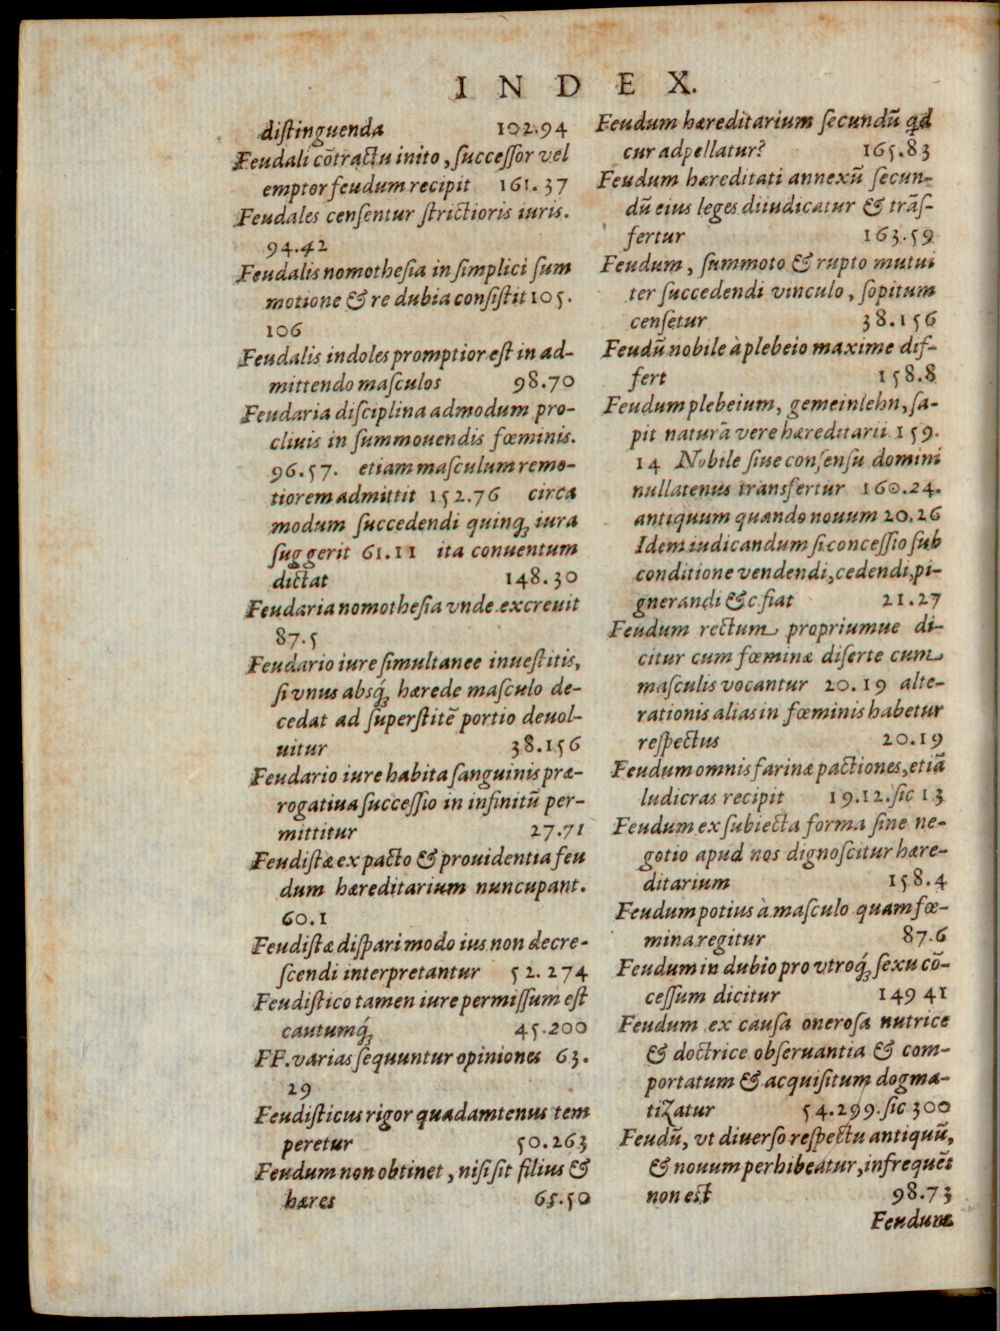 INDEX.
diſtinguenda 102.94
Feudali cõtractu inito, ſucceſſor vel
emptor feudum recipit 161.37
Feudales cenſentur ſtrictioris iuris.
94.42
Feudalis nomotheſia in ſimplici ſum
motione & re dubia conſiſtit 105.
106
Feudalis indoles promptior eſt in ad-
mittendo maſculos 98.70
Feudaria diſciplina admodum pro-
cliuis in ſummouendis fœminis.
96.57. etiam maſculum remo-
tiorem admittit 152.76 circa
modum ſuccedendi quinq́; iura
ſuggerit 61.11 ita conuentum
dictat 148.30
Feudaria nomotheſia vnde excreuit
87.5
Feudario iure ſimultanee inueſtitis,
ſi vnus absq́; hærede maſculo de-
cedat ad ſuperſtitẽ portio deuol-
uitur 38.156
Feudario iure habita ſanguinis præ-
rogatiua ſucceſſio in infinitũ per-
mittitur 27.71
Feudiſtæ ex pacto & prouidentia feu
dum hæreditarium nuncupant.
60.1
Feudiſtæ diſpari modo ius non decre-
ſcendi interpretantur 52.274
Feudiſtico tamen iure permiſſum eſt
cautumq́; 45.200
FF. varias ſequuntur opiniones 63.
29
Feudiſticus rigor quadamtenus tem
peretur 50.263
Feudum non obtinet, niſi ſit filius &
hæres 65.50
Feudum hæreditarium ſecundũ qd
cur adpellatur? 165.83
Feudum hæreditati annexũ ſecun-
dũ eius leges diiudicatur & trãſ-
fertur 163.59
Feudum, ſummoto & rupto mutui
ter ſuccedendi vinculo, ſopitum
cenſetur 38.156
Feudũ nobile à plebeio maxime dif-
fert 158.8
Feudum plebeium, gemeinlehn, ſa-
pit naturã vere hæreditarii 159.
14 Nobile ſiue conſenſu domini
nullatenus transfertur 160.24.
antiquum quando nouum 20.26
Idem iudicandum ſi conceſſio ſub
conditione vendendi, cedendi, pi-
gnerandi &c fiat 21.27
Feudum rectum propriumue di-
citur cum fœminæ diſerte cum
maſculis vocantur 20.19 alte-
rationis alias in fœminis habetur
reſpectus 20.19
Feudum omnis farinæ pactiones, etiã
ludicras recipit 19.12. ſic 13
Feudum ex ſubiecta forma ſine ne-
gotio apud nos dignoſcitur hære-
ditarium 158.4
Feudum potius à maſculo quam fœ-
mina regitur 87.6
Feudum in dubio pro vtroq́; ſexu cõ-
ceſſum dicitur 149 41
Feudum ex cauſa oneroſa nutrice
& doctrice obſeruantia & com-
portatum & acquiſitum dogma-
tizatur 54.299. ſic 300
Feudũ, vt diuerſo reſpectu antiquũ,
& nouum perhibeatur, infrequẽs
non est 98.73
Feudum